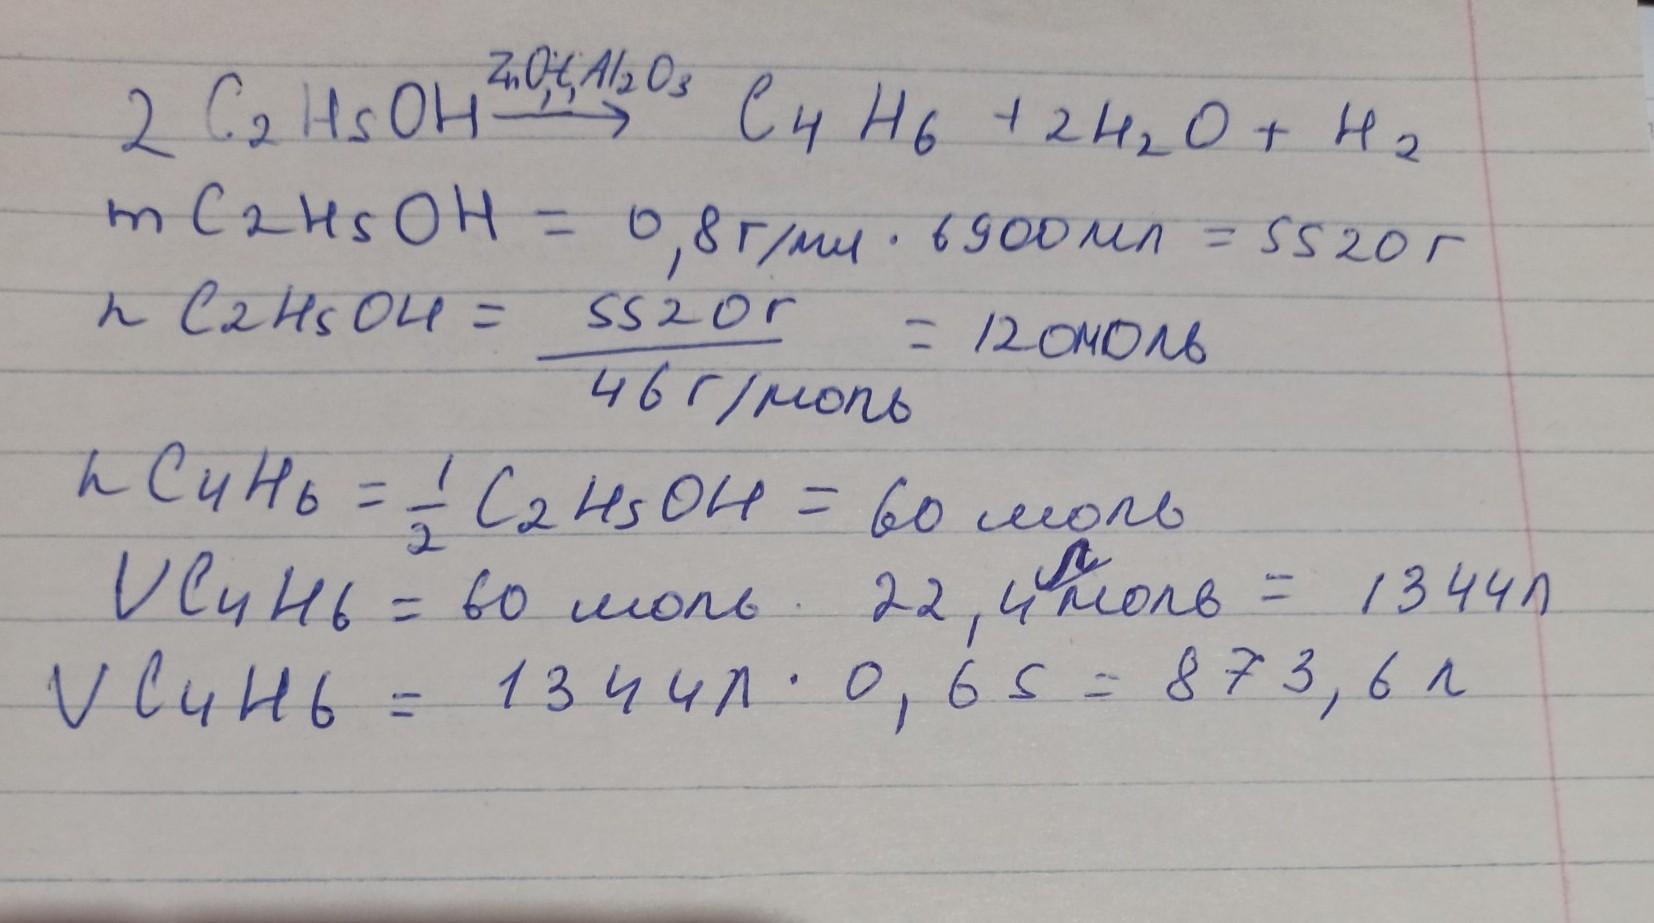 ZnO, t, Al₂O₃
2 C₂H₅OH ⟶ C₄H₆ + 2H₂O + H₂
m C₂H₅OH = 0,8 г/мл · 6900 мл = 5520 г
n C₂H₅OH = 5520 г / 46 г/моль = 120 моль
n C₄H₆ = 1/2 C₂H₅OH = 60 моль
V C₄H₆ = 60 моль · 22,4 л/моль = 1344 л
V C₄H₆ = 1344 л · 0,65 = 873,6 л